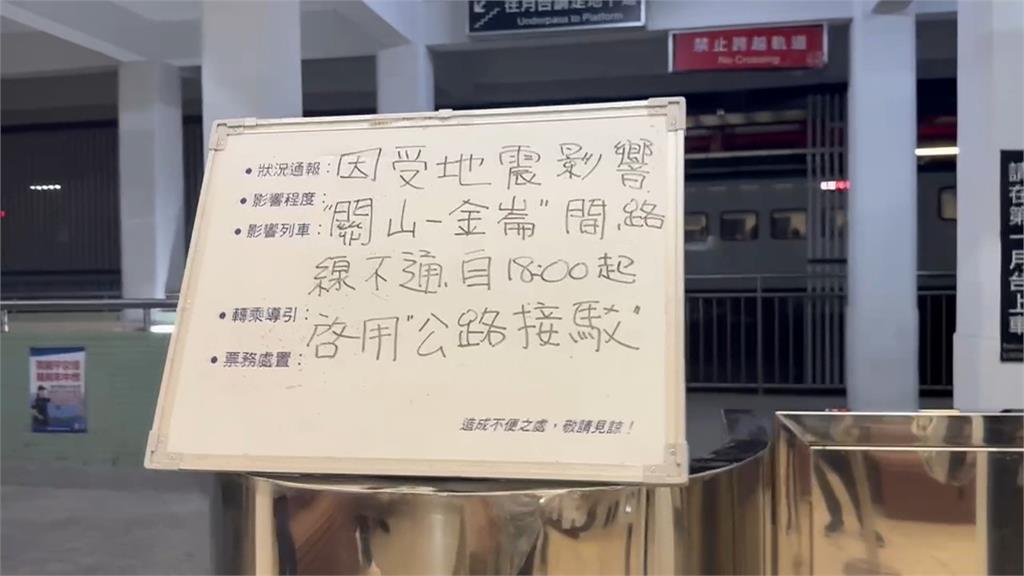 在月台請走地下道
Underpass to Platform
禁止跨越軌道
No Crossing
狀況通報：因受地震影響
影響程度：
影響列車："關山-金崙"間路
線不通自18:00起
轉乘導引：啓用"公路接駁"
票務處置：
造成不便之處，敬請見諒！
請在第一月台上車